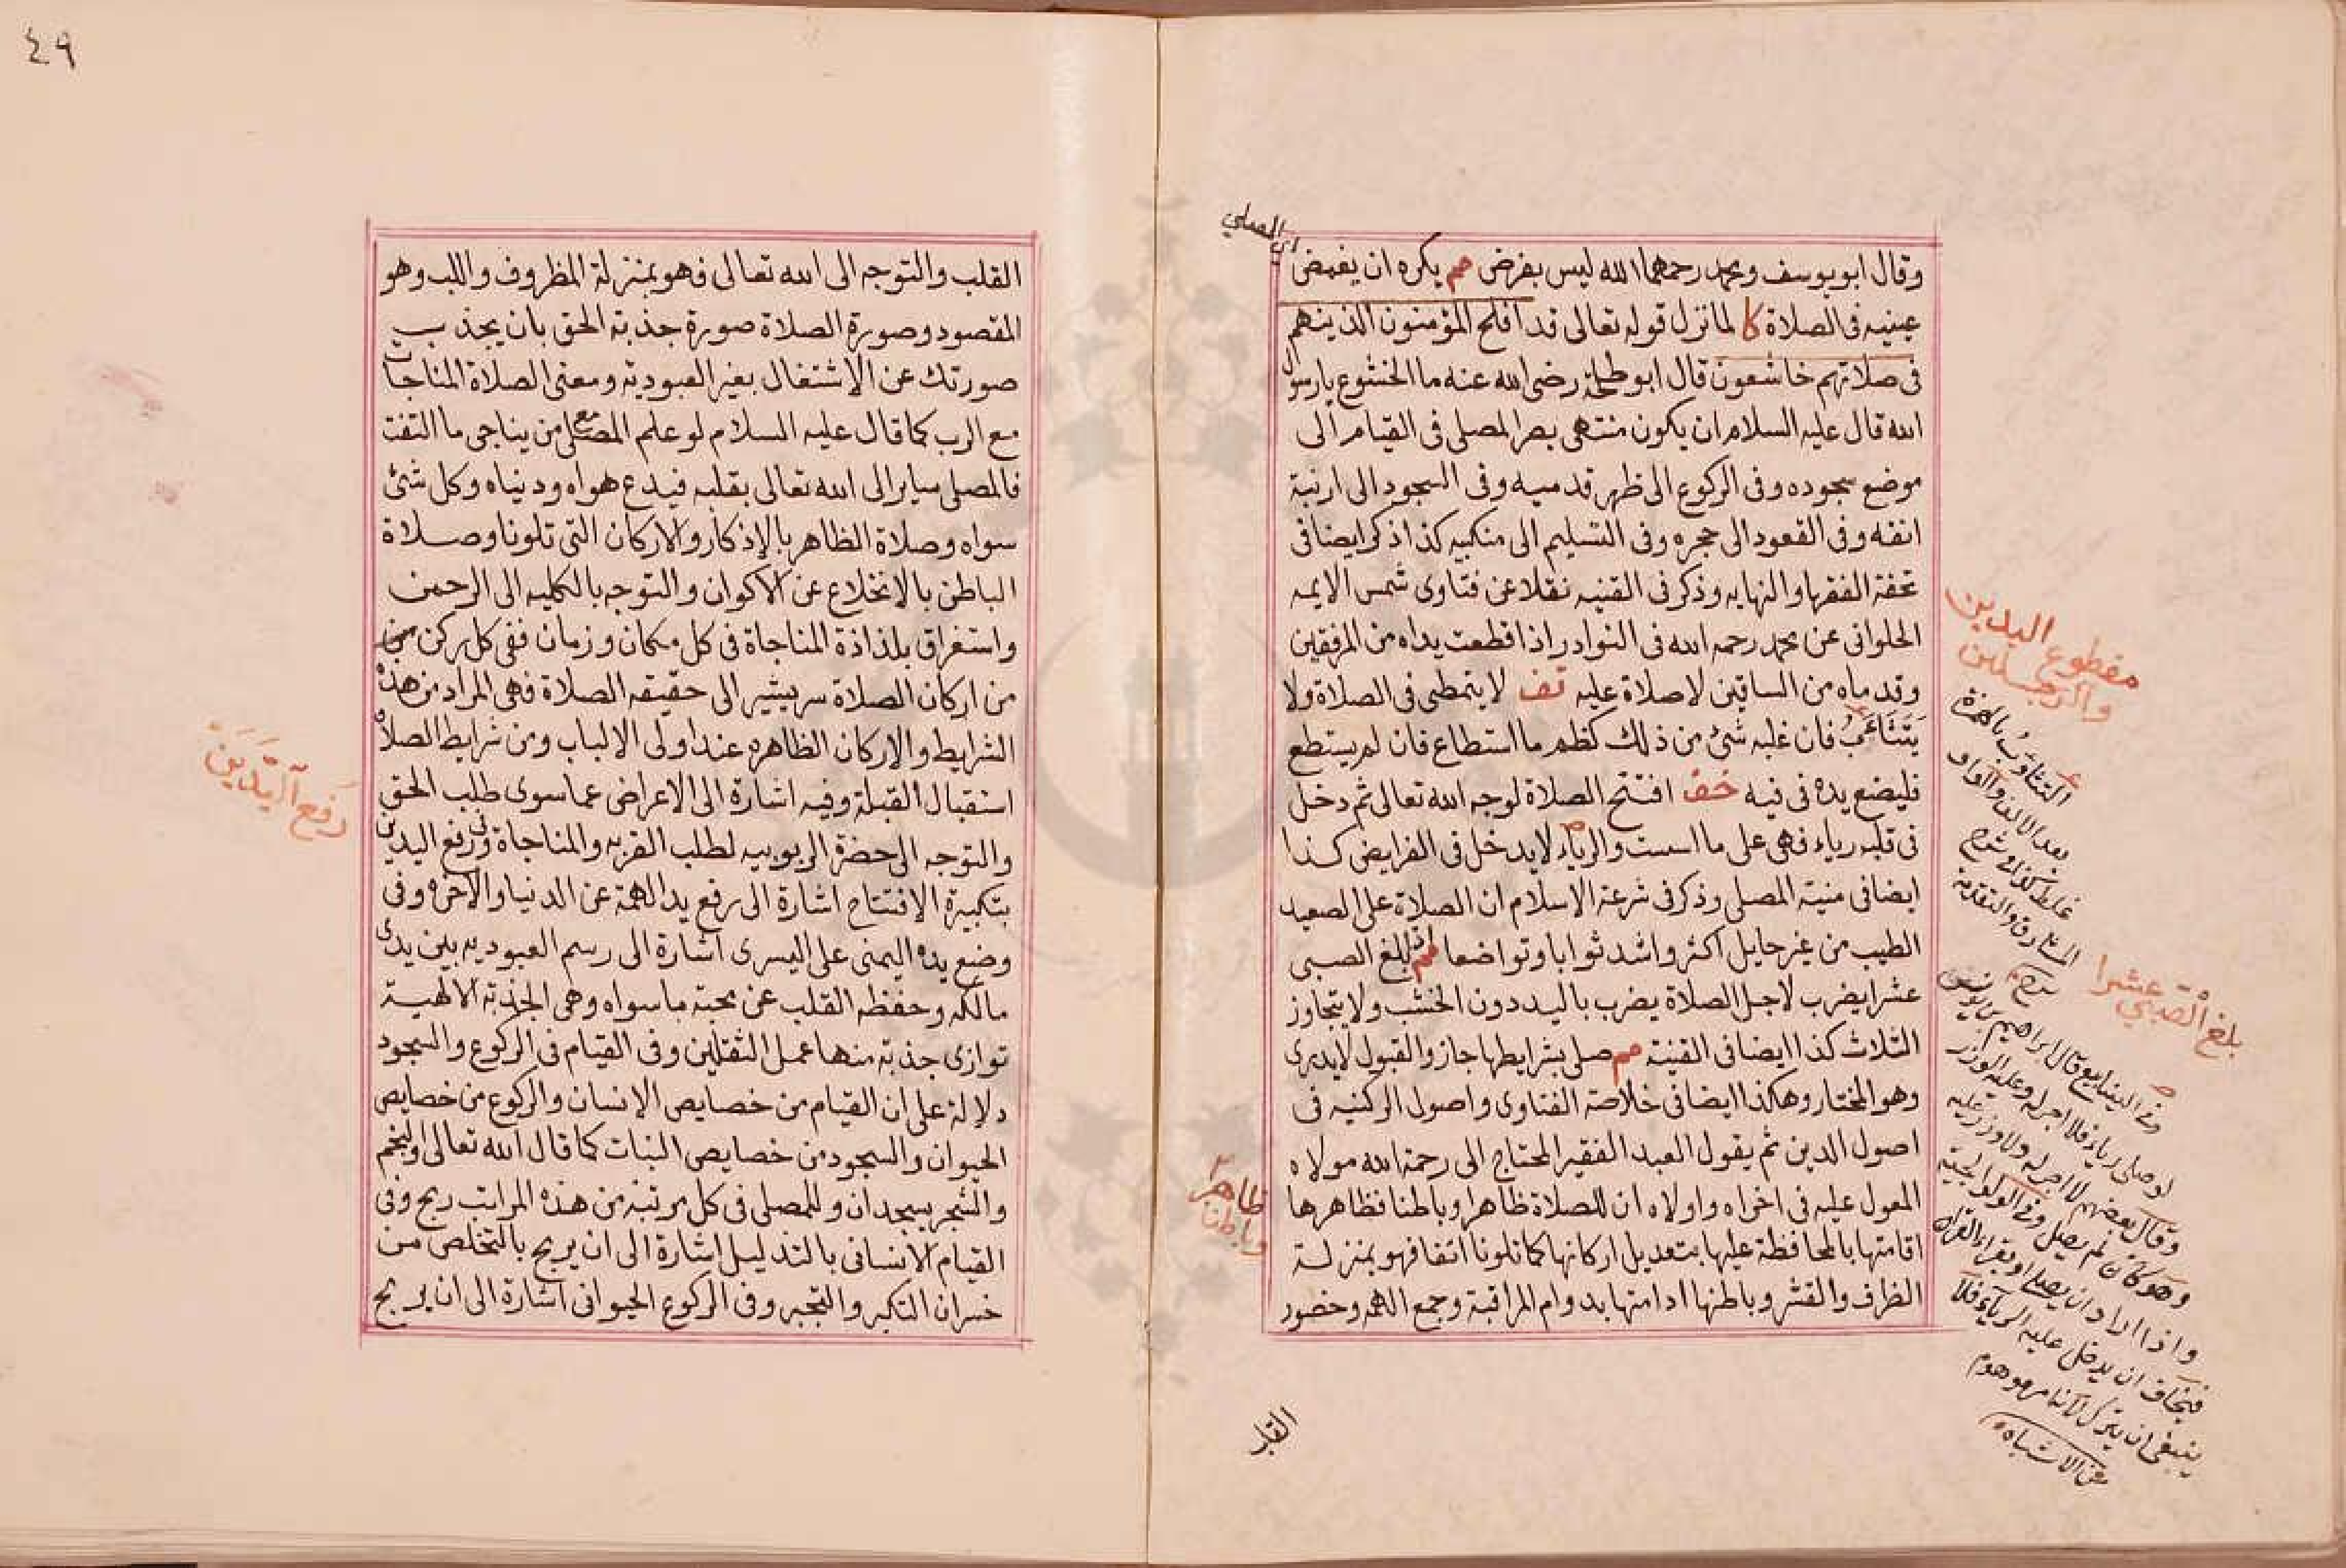 وقال ابو يوسف ومحمد رحمهما الله ليس بفرض مم يكره ان يغمض
اى المصلي
عينيه فى الصلاة كا لما نزل قوله تعالى قد افلح المؤمنون الذينهم
فى صلاتهم خاشعون قال ابو طلحة رضى الله عنه ما الخشوع يا رسول
الله قال عليه السلام ان يكون منتهى بصر المصلى فى القيام الى
موضع سجوده وفى الركوع الى ظهر قدميه وفى السجود الى ارنبة
انفه وفى القعود الى حجره وفى التسليم الى منكبيه كذا ذكر ايضا فى
تحفة الفقها والنهايه وذكر فى القنيه نقلا عن فتاوى شمس الايمه
الحلوانى عن محمد رحمه الله فى النوادر اذا قطعت يداه من المرفقين
وقدماه من الساقين لا صلاة عليه تف لا يتمطى فى الصلاة ولا
يتثاءب فان غلبه شئ من ذلك كظم ما استطاع فان لم يستطع
فليضع يده فى فيه خف افتتح الصلاة لوجه الله تعالى ثم دخل
فى قلبه رياء فهى على ما اسست والرياء لا يدخل فى الفرايض كذا
ايضا فى منية المصلى وذكر فى شرعة الاسلام ان الصلاة على الصعيد
الطيب من غير حايل اكثر واشد ثوابا وتواضعا مم اذا بلغ الصبى
عشرا يضرب لاجل الصلاة يضرب باليد دون الخشب ولا يتجاوز
الثلاث كذا ايضا فى القنية مم صلى بشرايطها جاز والقبول لا يدرى
وهو المختار وهكذا ايضا فى خلاصة الفتاوى واصول الركنيه فى
اصول الدين ثم يقول العبد الفقير المحتاج الى رحمة الله مولاه
المعول عليه فى اخراه واولاه ان للصلاة ظاهرا وباطنا فظاهرها
اقامتها بالمحافظة عليها بتعديل اركانها كما تلونا انفا فهو بمنزلة
الظرف والقشر وباطنها ادامتها بدوام المراقبة وجمع الهم وحضور
القلب
مقطوع اليدين
والرجلين
التثاوب بالهمزة
بعد الالف والواو
غلط كذا فى شرح
المشارق والتقدمة
شرح
بلغ الصبي عشرا
وفى الينابيع قال ابراهيم بن يوسف
لو صلى رياء فلا اجر له وعليه الوزر
وقال بعضهم لا اجر له ولا وزر عليه
وهو كان لم يصل وفى الولوالجية
واذا اراد ان يصلى او يقراء القران
فيخاف ان يدخل عليه الرياء فلا
ينبغى ان يترك لانه امر موهوم
من الاشباه
ظاهر
وباطنا
٤٩
القلب والتوجه الى الله تعالى فهو بمنزلة المظروف واللب وهو
المقصود وصورة الصلاة صورة جذبة الحق بان يجذب
صورتك عن الاشتغال بغير العبودية ومعنى الصلاة المناجات
مع الرب كما قال عليه السلام لو علم المصلى من يناجى ما التفت
فالمصلى ساير الى الله تعالى بقلبه فيدع هواه ودنياه وكل شئ
سواه وصلاة الظاهر بالاذكار والاركان التى تلونا وصلاة
الباطن بالانخلاع عن الاكوان والتوجه بالكليه الى الرحمن
واستغراق بلذاذة المناجاة فى كل مكان وزمان ففى كل ركن من
من اركان الصلاة سر يشير الى حقيقه الصلاة فهى المراد من هذه
الشرايط والاركان الظاهره عند اولى الالباب ومن شرايط الصلاة
استقبال القبلة وفيه اشارة الى الاعراض عما سوى طلب الحق
والتوجه الى حضرة الربوبيه لطلب القربه والمناجاة وفى رفع اليدين
بتكبيرة الافتتاح اشارة الى رفع يد الهمة عن الدنيا والاخره وفى
وضع يده اليمنى على اليسرى اشارة الى رسم العبوديه بين يدى
مالكه وحفظه القلب عن محبة ما سواه وهى الجذبة الالهية
توازى جذبة منها عمل الثقلين وفى القيام فى الركوع والسجود
دلالة على ان القيام من خصايص الانسان والركوع من خصايص
الحيوان والسجود من خصايص النبات كما قال الله تعالى والنجم
والشجر يسجدان وللمصلى فى كل مرتبة من هذه المراتب ربح وفى
القيام الانسانى بالتذليل اشارة الى ان يربح بالتخلص من
خسران التكبر والتجبر وفى الركوع الحيوانى اشارة الى ان يربح
رفع اليدين